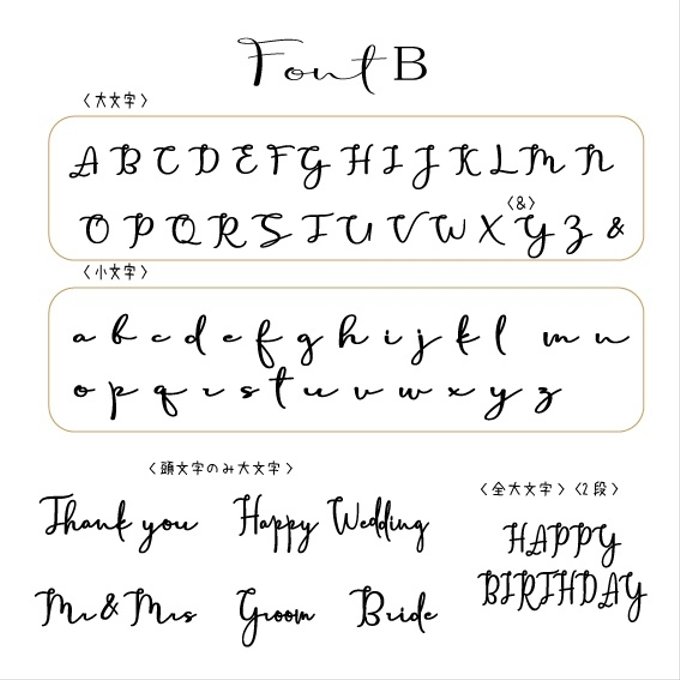 Font B
〈大文字〉
A B C D E F G H I J K L M N
〈&〉
O P Q R S T U V W X Y Z &
〈小文字〉
a b c d e f g h i j k l m n
o p q r s t u v w x y z
〈頭文字のみ大文字〉
Thank you Happy Wedding
Mr & Mrs Groom Bride
〈全大文字〉〈2段〉
HAPPY
BIRTHDAY